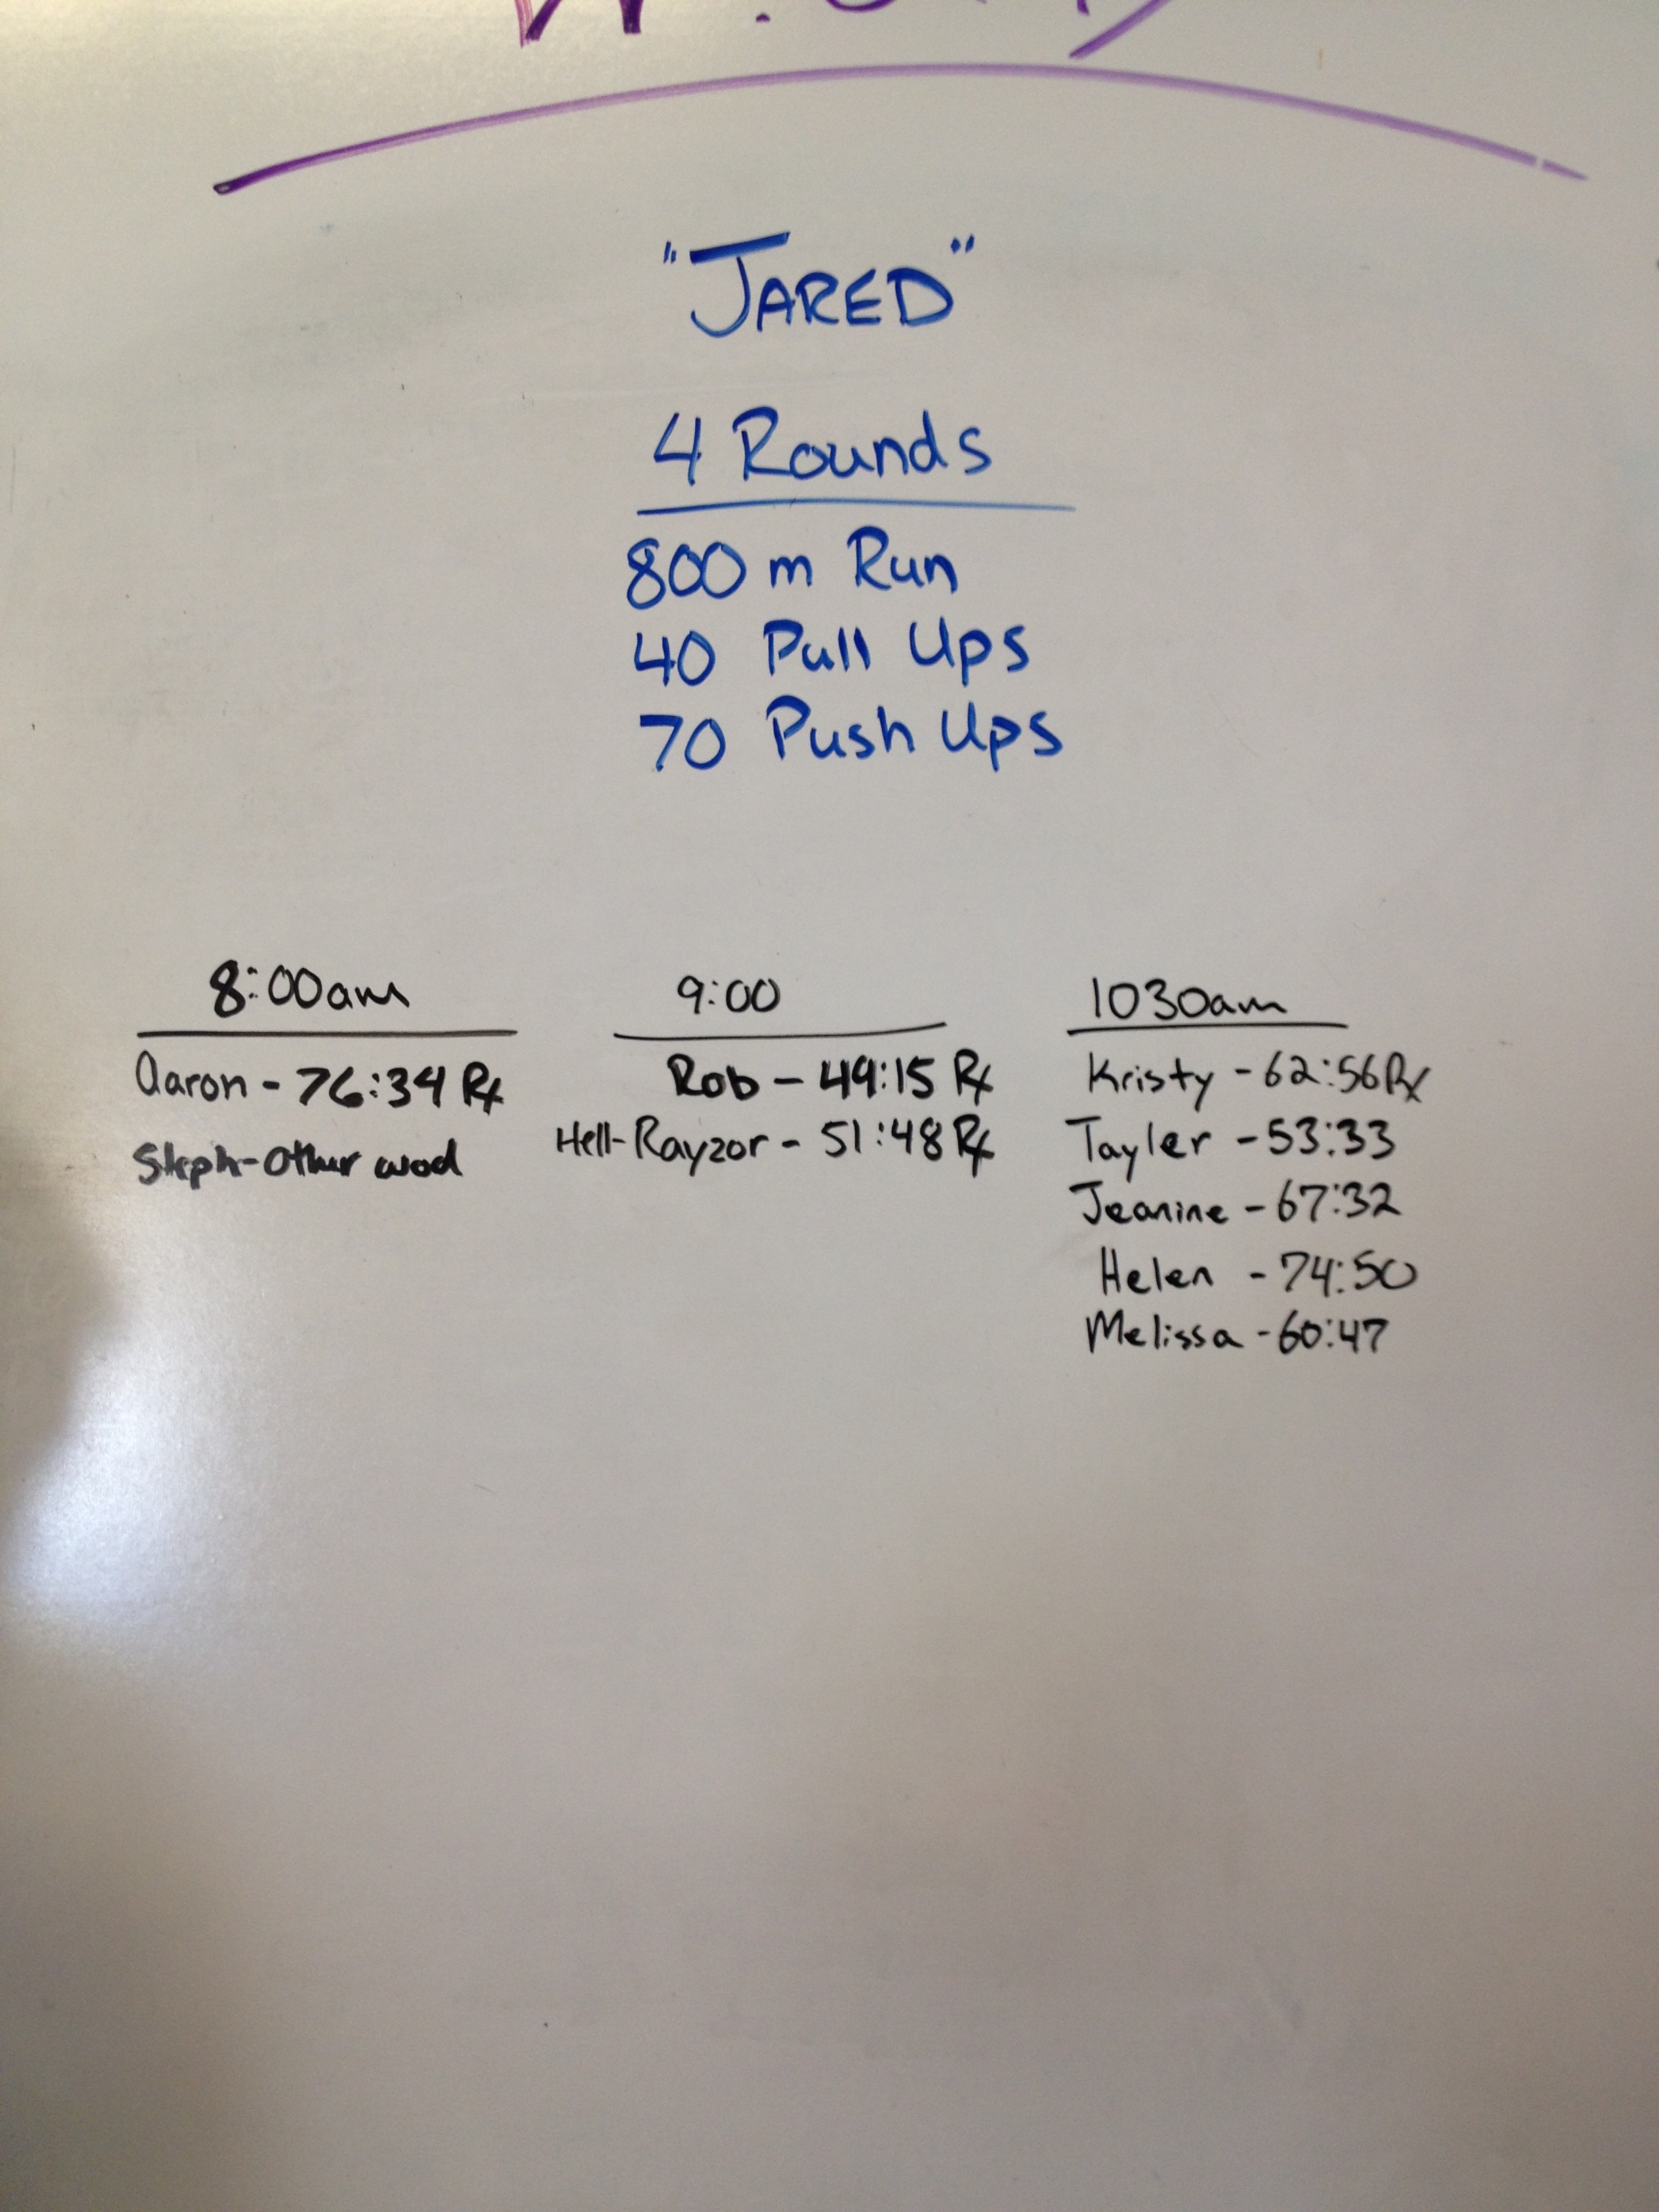 "JARED"
4 Rounds
800 m Run
40 Pull Ups
70 Push Ups
8:00am
Aaron - 76:34 Rx
Steph - Other wod
9:00
Rob - 49:15 Rx
Hell-Rayzor - 51:48 Rx
1030am
Kristy - 62:56 Rx
Tayler - 53:33
Jeanine - 67:32
Helen - 74:50
Melissa - 60:47